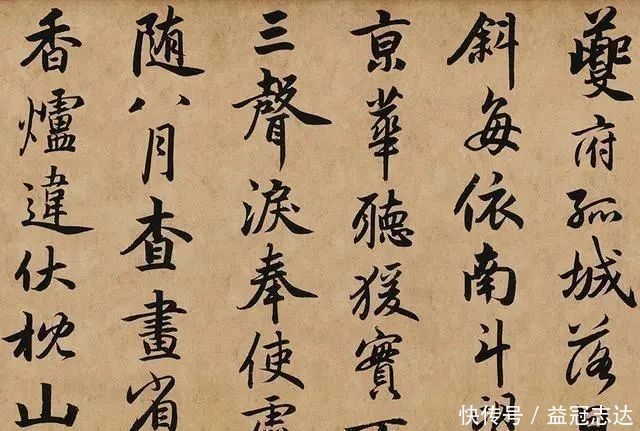 夔府孤城落日
斜每依南斗望
京華聽猨實下
三聲淚奉使虛
随八月查畫省
香爐違伏枕山
快传号 / 益冠志达